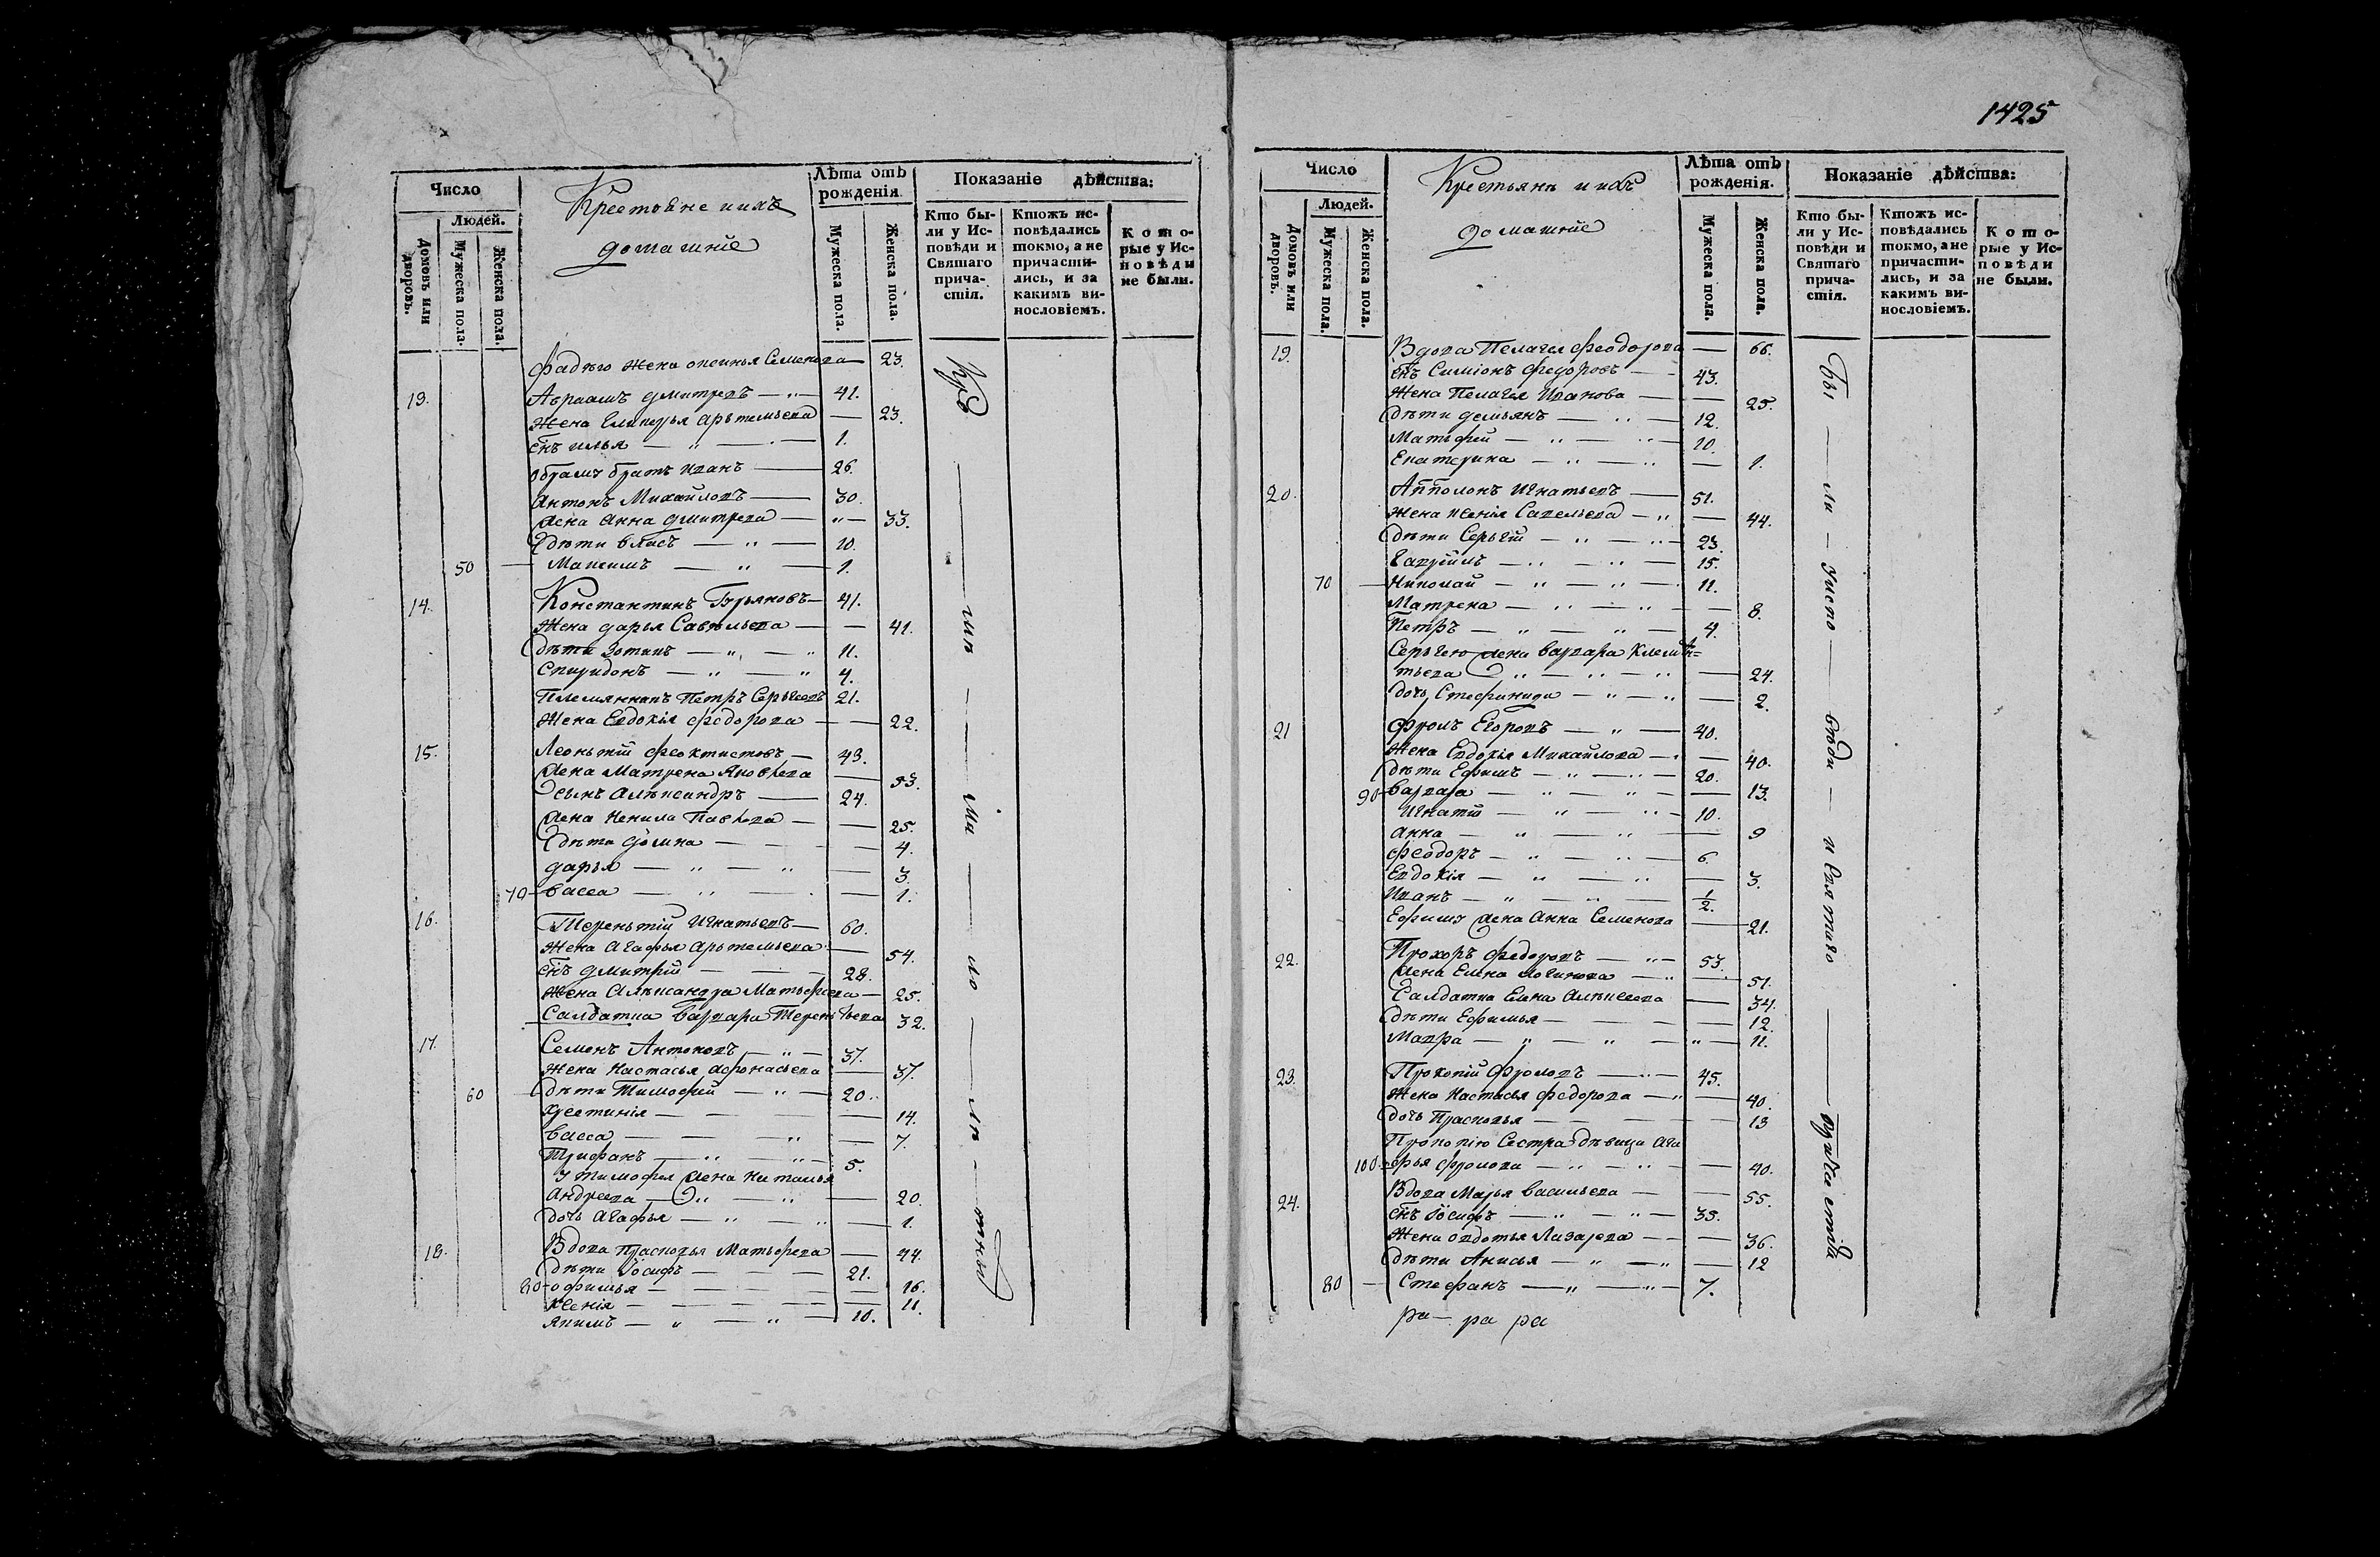 Число
Людей.
Домовъ или дворовъ.
Мужеска пола.
Женска пола.
Крестьяне ихъ
домашніе
Лѣта отъ рожденія.
Мужеска пола.
Женска пола.
Показаніе дѣйства:
Кто бы-
ли у Ис-
повѣди и
Святаго
прича-
стія.
Ктожъ ис-
повѣдались
токмо, а не
причасти-
лись, и за
какимъ ви-
нословіемъ.
Кото-
рые у Ис-
повѣди
не были.
жена Семенова — 23.
13. Авраамъ Дмитревъ — 41.
Жена Артемьева — 23.
снъ Илья — 1.
братъ Иванъ — 26.
Антонъ Михайловъ — 30.
жена Анна Дмитрева — 33.
дѣти Власъ — 10.
50 — Максимъ — 1.
14. Константинъ — 41.
Жена дарья Савельева — 41.
дѣти — 11.
Спиридонъ — 4.
Племянникъ Петръ Сергѣевъ 21.
Жена Евдокія Федорова — 22.
15. Леонтій Феоктистовъ — 43.
жена Матрена Яковлева — 53.
сынъ Александръ — 24.
жена Ненила Павлова — 25.
дѣти домна — 4.
дарья — 3.
70 — Васса — 1.
16. Терентій Игнатьевъ — 60.
Жена Агафья Артемьева — 54.
снъ Дмитрій — 28.
Жена Александра Матьфеева — 25.
Салдатка Варвара Терентьева 32.
17. Семенъ Антоновъ — 37.
Жена Настасья Афонасьева — 37.
60 — дѣти Тимофей — 20.
Христинія — 14.
Васса — 7.
Трифанъ — 5.
у Тимофея жена Наталья
Андреева — 20.
дочь Агафья — 1.
18. Вдова Прасковья Матьфеева — 44.
дѣти Іосифъ — 21.
80 — Офимья — 16.
Ксенія — 11.
Якимъ — 10.
1425
Число
Людей.
Домовъ или дворовъ.
Мужеска пола.
Женска пола.
Крестьянъ ихъ
домашніе
Лѣта отъ рожденія.
Мужеска пола.
Женска пола.
Показаніе дѣйства:
Кто бы-
ли у Ис-
повѣди и
Святаго
прича-
стія.
Ктожъ ис-
повѣдались
токмо, а не
причасти-
лись, и за
какимъ ви-
нословіемъ.
Кото-
рые у Ис-
повѣди
не были.
19. Вдова Пелагея Феодорова — 66.
снъ Симіонъ Федоровъ — 43.
Жена Пелагея Иванова — 25.
дѣти Демьянъ — 12.
Матьфей — 10.
Екатерина — 1.
20. Апполонъ Игнатьевъ — 51.
Жена Савельева — 44.
дѣти Сергѣй — 23.
Гаврійлъ — 15.
70 — Николай — 11.
Матрена — 8.
Петръ — 4.
Сергѣю жена Варвара Клемен=
тьева — 24.
дочь Стефанида — 2.
21 Фролъ Егоровъ — 40.
Жена Евдокія Михайлова — 40.
дѣти Ефимъ — 20.
90 — Варвара — 13.
Игнатій — 10.
Анна — 9
Феодоръ — 6.
Евдокія — 3.
Иванъ — 1/2.
Ефиму жена Анна Семенова — 21.
22. Прохоръ Федоровъ — 53.
жена Елена Логинова — 51.
Салдатка Елена Алексеева — 34.
дѣти Ефимья — 12.
Мавра — 11.
23. Прокопій Фроловъ — 45.
Жена Настасья Федорова — 40.
дочь Прасковья — 13
Прокопію Сестра дѣвица Ага
100 — фья Фролова — 40.
24. Вдова Марья Васильева — 55.
снъ Іосифъ — 35.
Жена Овдотья Лазарева — 36.
дѣти Анисья — 12
80 — Стефанъ — 7.
Бы — ли — у испо — вѣди — и Святаго — Причастія
ра — ра ра